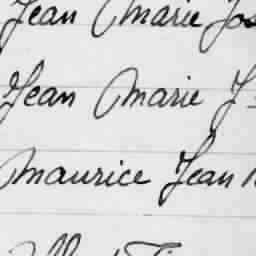 Jean Marie Jos
Jean Marie J
Maurice Jean